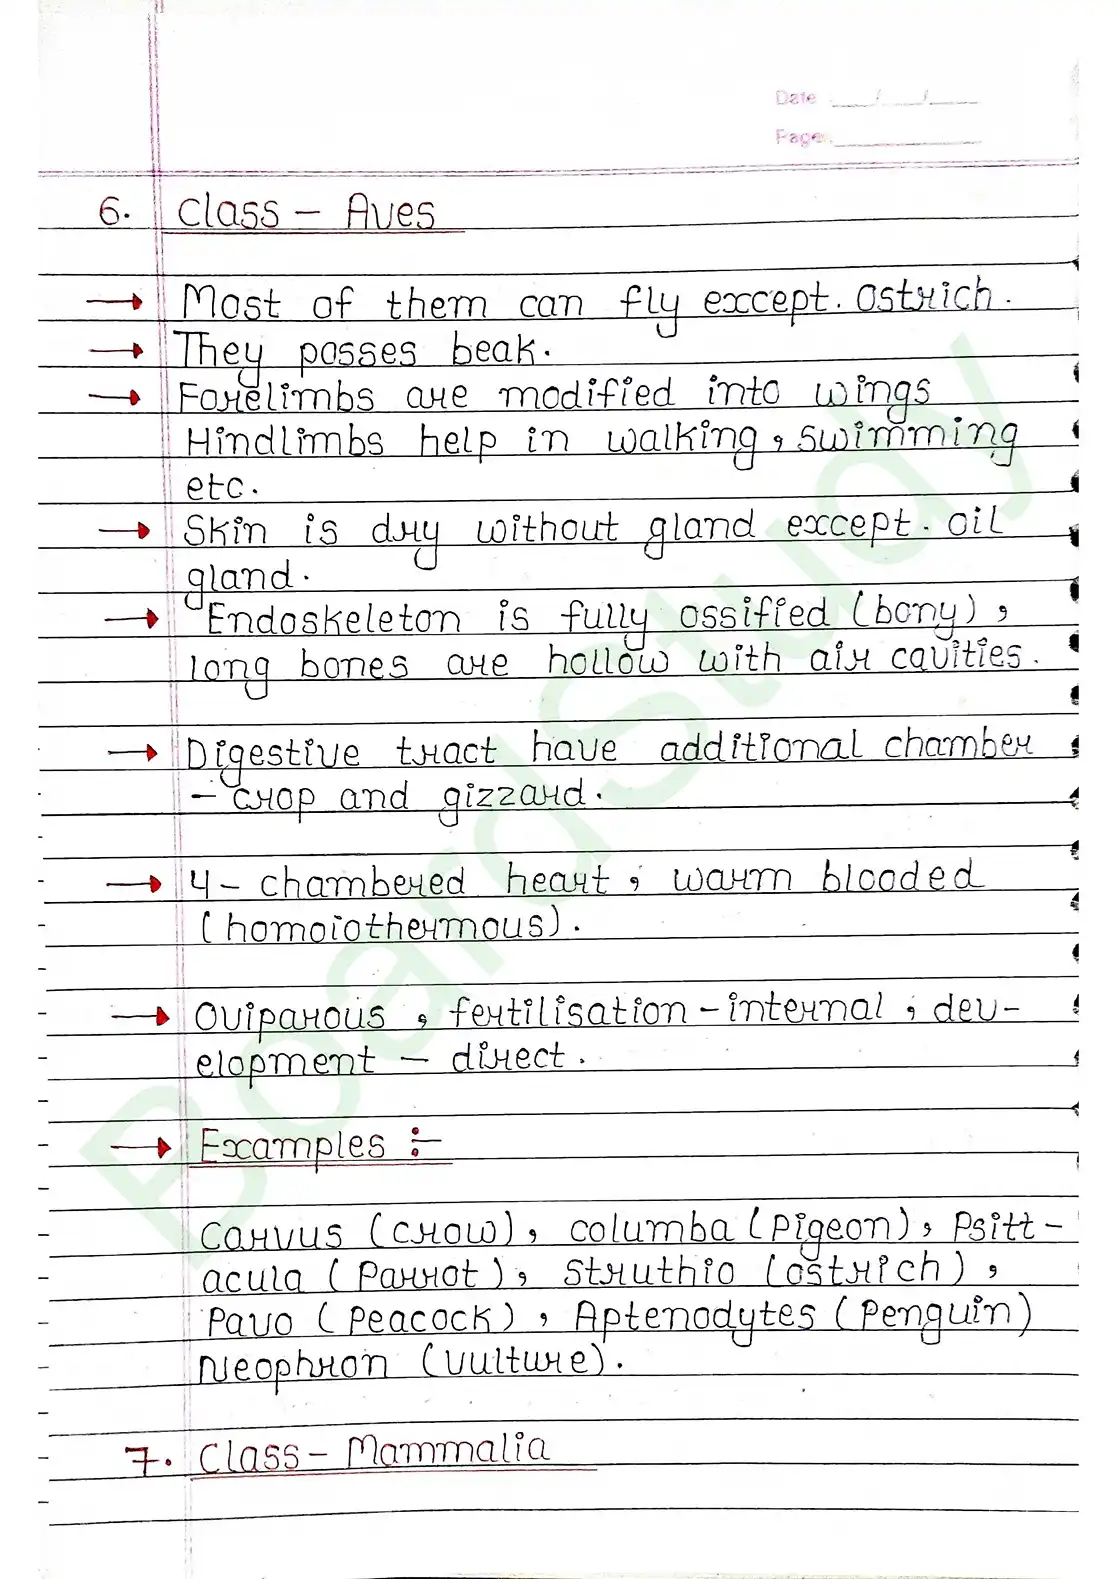 Date : __/__/__
Page: ______
6. Class - Aves
→ Most of them can fly except. Ostrich.
→ They posses beak.
→ Forelimbs are modified into wings
Hindlimbs help in walking, swimming
etc.
→ Skin is dry without gland except. oil
gland.
→ Endoskeleton is fully ossified (bony),
long bones are hollow with air cavities.
→ Digestive tract have additional chamber
- crop and gizzard.
→ 4 - chambered heart ; warm blooded
(homoiothermous).
→ Oviparous, fertilisation - internal ; dev-
elopment - direct.
→ Examples :-
Corvus (crow), columba (Pigeon), Psitt-
acula (Parrot), Struthio (ostrich),
Pavo (Peacock), Aptenodytes (Penguin)
Neophron (vulture).
7. Class - Mammalia
BoardStudy